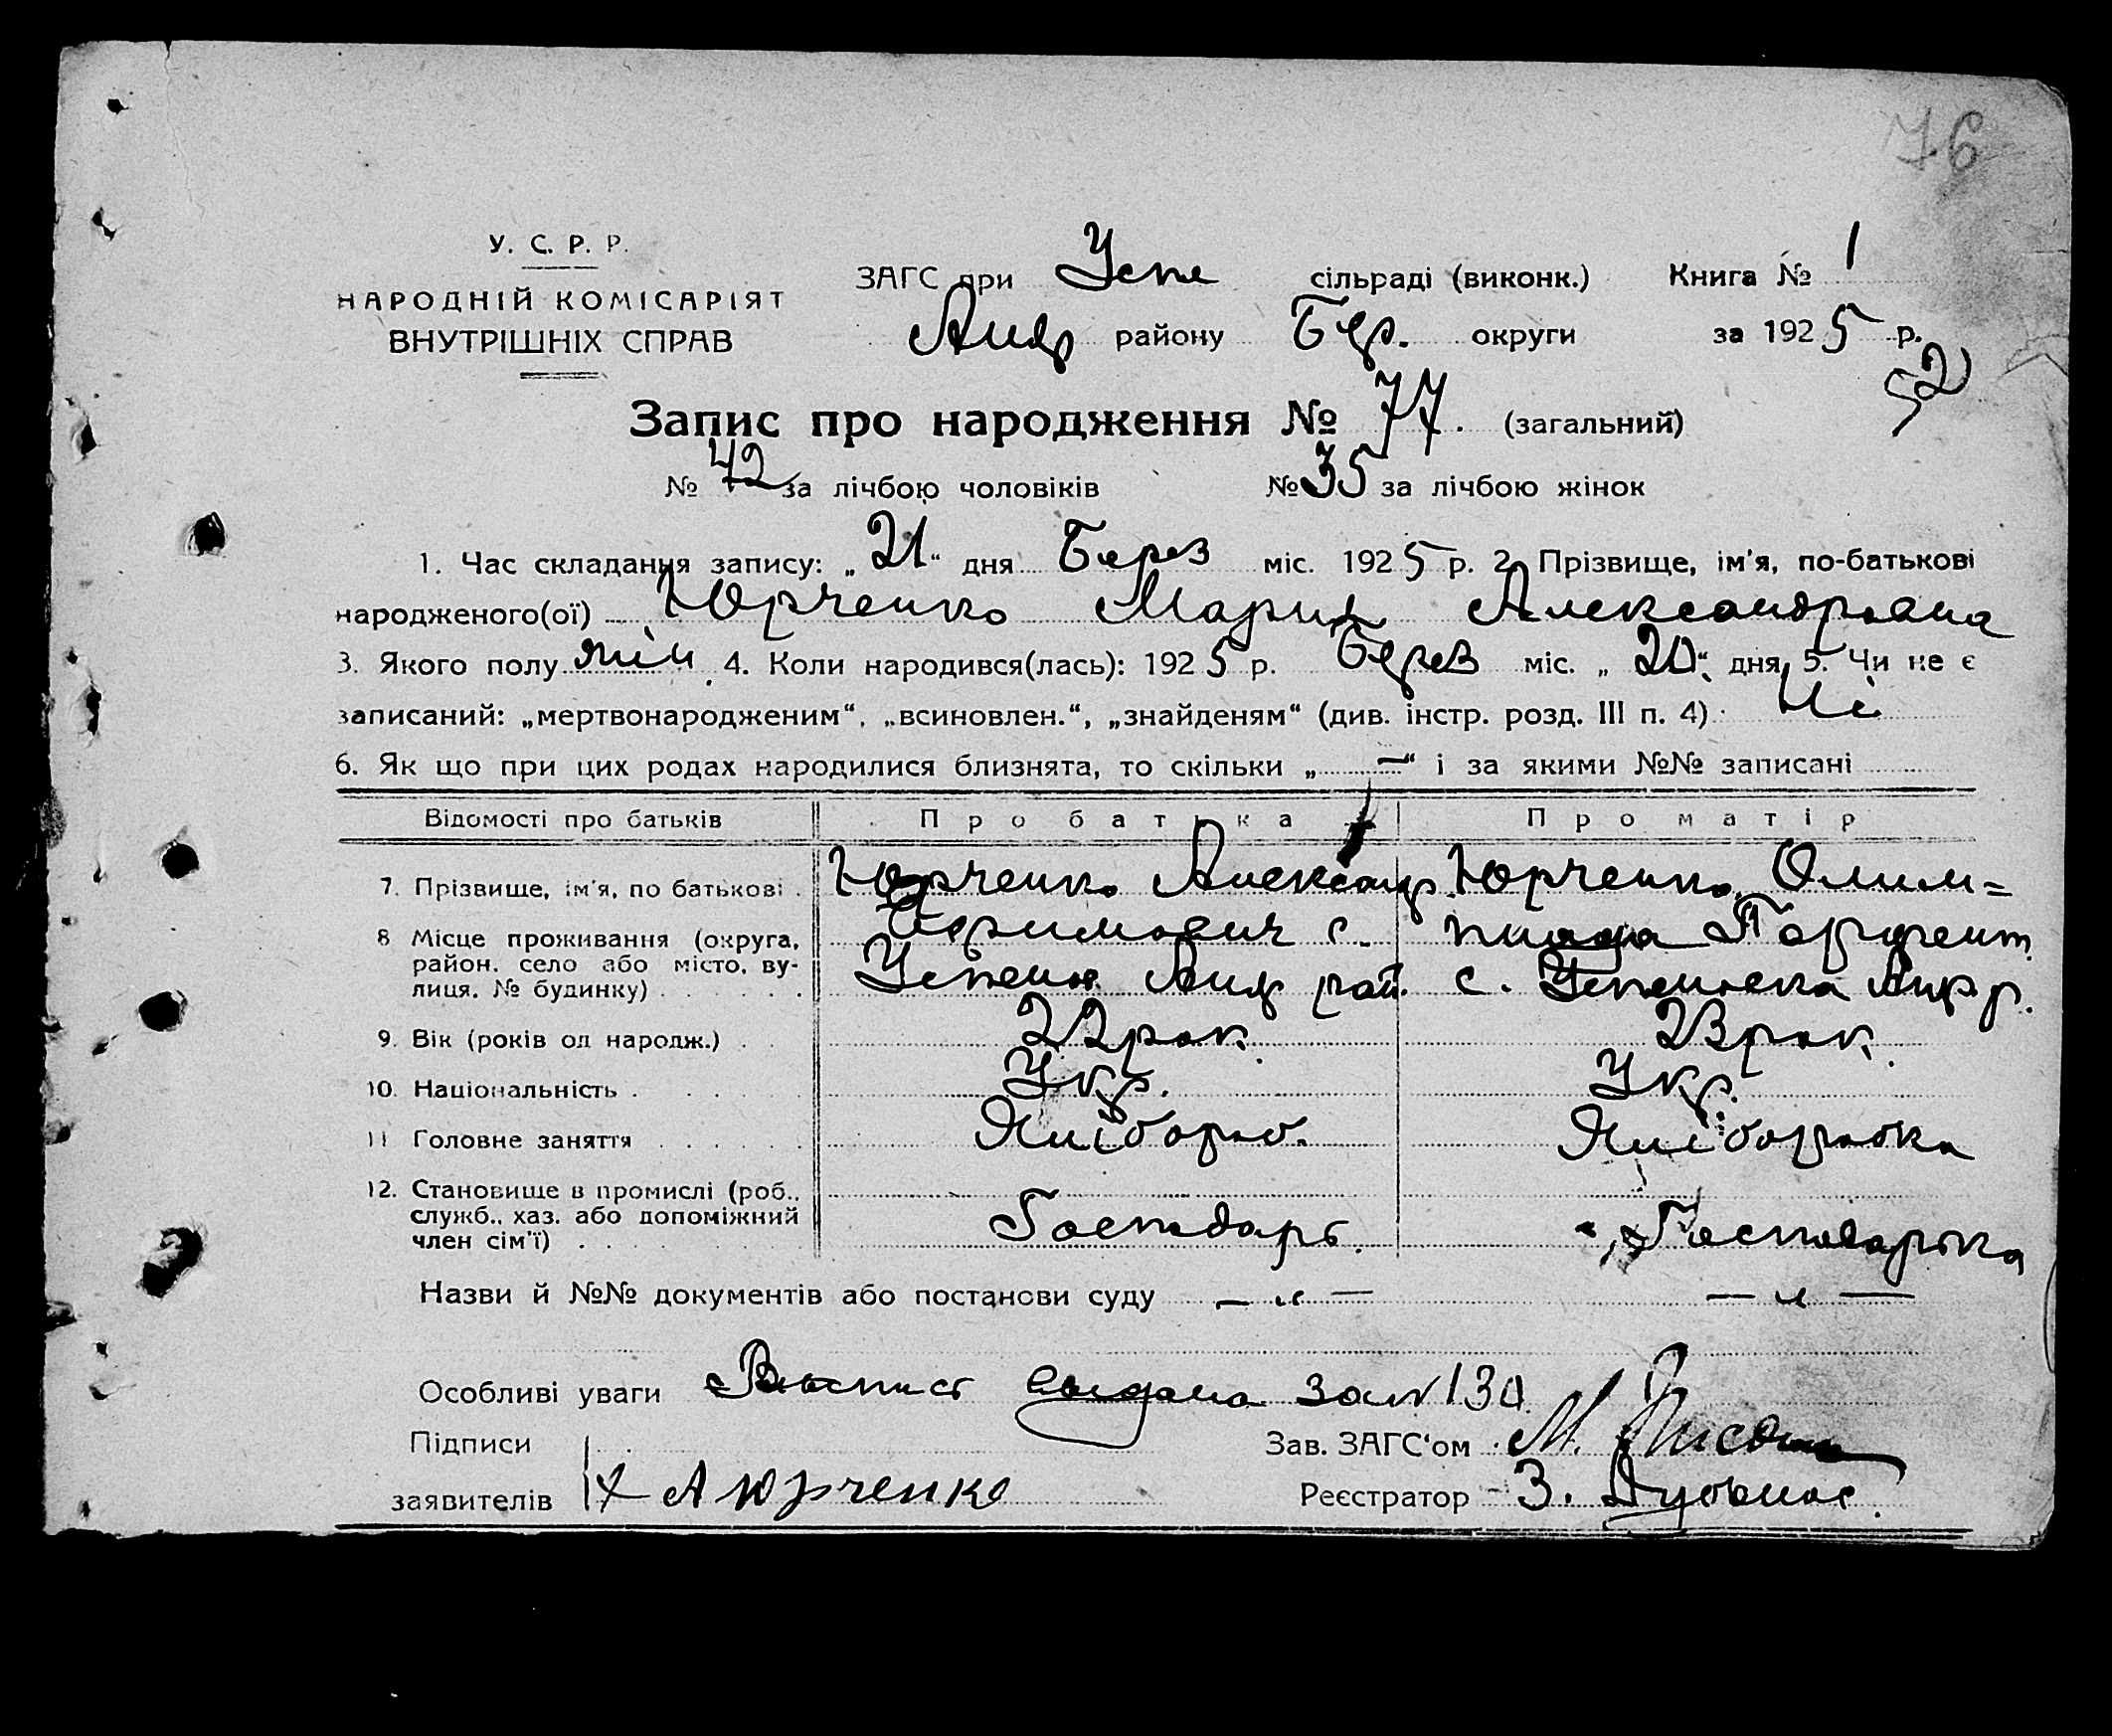 76
У. С. Р. Р.
НАРОДНІЙ КОМІСАРІЯТ
ВНУТРІШНІХ СПРАВ
ЗАГС при Успе сільраді (виконк.) Книга № 1
Андр району Бер. округи за 1925 р.
52
Запис про народження № 77. (загальний)
№ 42 за лічбою чоловіків № 35 за лічбою жінок
1. Час складання запису: „21“ дня Берез міс. 1925 р. 2. Прізвище, ім'я, по-батькові
народженого(ої) Юрченко Мария Александровна
3. Якого полу жін 4. Коли народився(лась): 1925 р. Берез міс. „20“ дня, 5. Чи не є
записаний: „мертвонародженим“, „всиновлен.“, „знайденям“ (див. інстр. розд. III п. 4) Ні
6. Як що при цих родах народилися близнята, то скільки „—“ і за якими №№ записані
Відомості про батьків Про батька Про матір
7. Прізвище, ім'я, по батькові Юрченко Александр Юрченко Олим=
8 Місце проживання (округа, район, село або місто, вулиця, № будинку) с. Успенов. Андр рай. с. Успеновка Андр р.
9. Вік (років од народж.) 22 рок. 23 рок.
10. Національність Укр. Укр.
11 Головне заняття Хлібороб. Хліборобка
12. Становище в промислі (роб., служб., хаз. або допоміжний член сім'ї) Господарь. Господарька
Назви й №№ документів або постанови суду — „ — — „ —
Особливі уваги Выпись выдана за № 130
Підписи Зав. ЗАГС'ом М.
заявителів А Юрченко Реєстратор З.